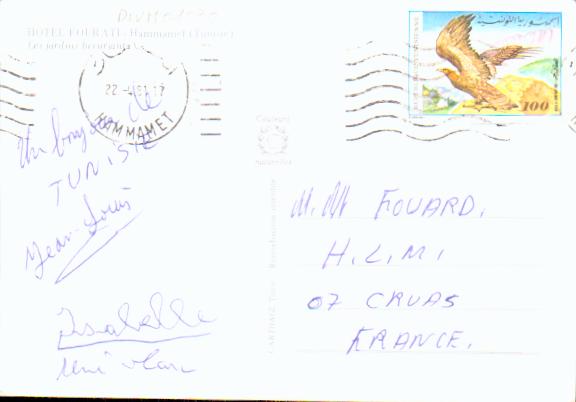 HOTEL FOURATI - Hammamet (Tunisie)
Les jardins
22 - 81 17
HAMMAMET
الجمهورية التونسية
100
Un bonjour de
TUNISIE
Jean-Louis
Isabelle
Couleurs
naturelles
CARTHAGE Tunis - Reproduction interdite
M. Mr FOUARD.
H.L.M.
07 CRUAS
FRANCE.